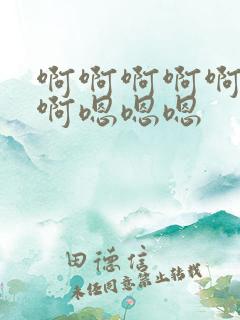 啊啊啊啊啊
啊嗯嗯嗯
田德信
未经同意禁止转载